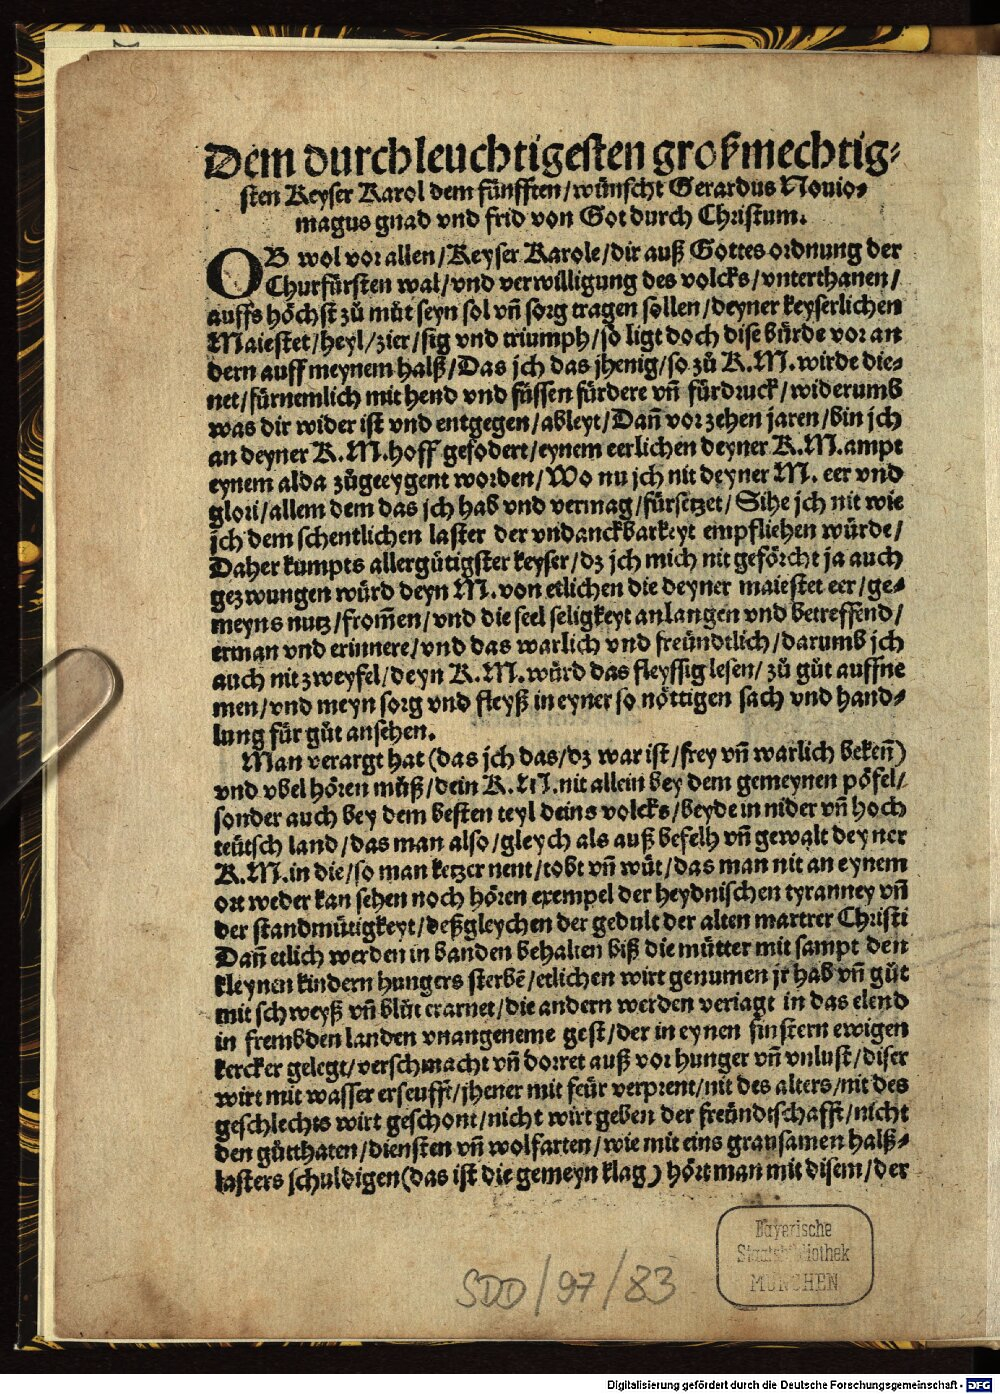 Dem durchleuchtigesten großmechtig⸗
sten Keyser Karol dem fünfften/wünscht Gerardus Nouio⸗
magus gnad vnd frid von Got durch Christum.
OB wol vor allen/Keyser Karole/dir auß Gottes ordnung der
Churfürsten wal/vnd verwilligung des volcks/vnterthanen/
auffs höchst zů můt seyn sol vñ sorg tragen sollen/deyner keyserlichen
Maiestet/heyl/zier/sig vnd triumph/so ligt doch dise bürde vor an
dern auff meynem halß/Das jch das jhenig/so zů K.M.wirde die⸗
net/fürnemlich mit hend vnd füssen fürdere vñ fürdruck/widerumb
was dir wider ist vnd entgegen/ableyt/Dañ vor zehen jaren/bin jch
an deyner K.M.hoff gefodert/eynem eerlichen deyner K.M.ampt
eynem alda zůgeeygent worden/Wo nu jch nit deyner M. eer vnd
glori/allem dem das jch hab vnd vermag/fürsetzet/Sihe jch nit wie
jch dem schentlichen laster der vndanckbarkeyt empfliehen würde/
Daher kumpts allergütigster keyser/dz jch mich nit geförcht ja auch
gezwungen würd deyn M.von etlichen die deyner maiestet eer/ge⸗
meyns nutz/from̃en/vnd die seel seligkeyt anlangen vnd betreffend/
erman vnd erinnere/vnd das warlich vnd freündtlich/darumb jch
auch nit zweyfel/deyn K.M.würd das fleyssig lesen/zů gůt auffne
men/vnd meyn sorg vnd fleyß in eyner so nöttigen sach vnd hand⸗
lung für gůt ansehen.
Man verargt hat(das jch das/dz war ist/frey vñ warlich beken̄)
vnd vbel hören můß/dein K.M.nit allein bey dem gemeynen pöfel/
sonder auch bey dem besten teyl deins volcks/beyde in nider vñ hoch
teütsch land/das man also/gleych als auß befelh vñ gewalt deyner
K.M.in die/so man ketzer nent/tobt vñ wüt/das man nit an eynem
ort weder kan sehen noch hören exempel der heydnischen tyranney vñ
der standmütigkeyt/deßgleychen der gedult der alten martrer Christi
Dañ etlich werden in banden behalten biß die mütter mit sampt den
kleynen kindern hungers sterbē/etlichen wirt genumen jr hab vñ gůt
mit schweyß vñ blůt erarnet/die andern werden veriagt in das elend
in frembden landen vnangeneme gest/der in eynen finstern ewigen
kercker gelegt/verschmacht vñ dorret auß vor hunger vñ vnlust/diser
wirt mit wasser erseufft/jhener mit feür verprent/nit des alters/nit des
geschlechts wirt geschont/nicht wirt geben der freündtschafft/nicht
den gůtthaten/diensten vñ wolfarten/wie mit eins grausamen halß⸗
lasters schuldigen(das ist die gemeyn klag)hört man mit disem/der
Bayerische
Staatsbibliothek
MÜNCHEN
SDD/97/83
Digitalisierung gefördert durch die Deutsche Forschungsgemeinschaft - DFG